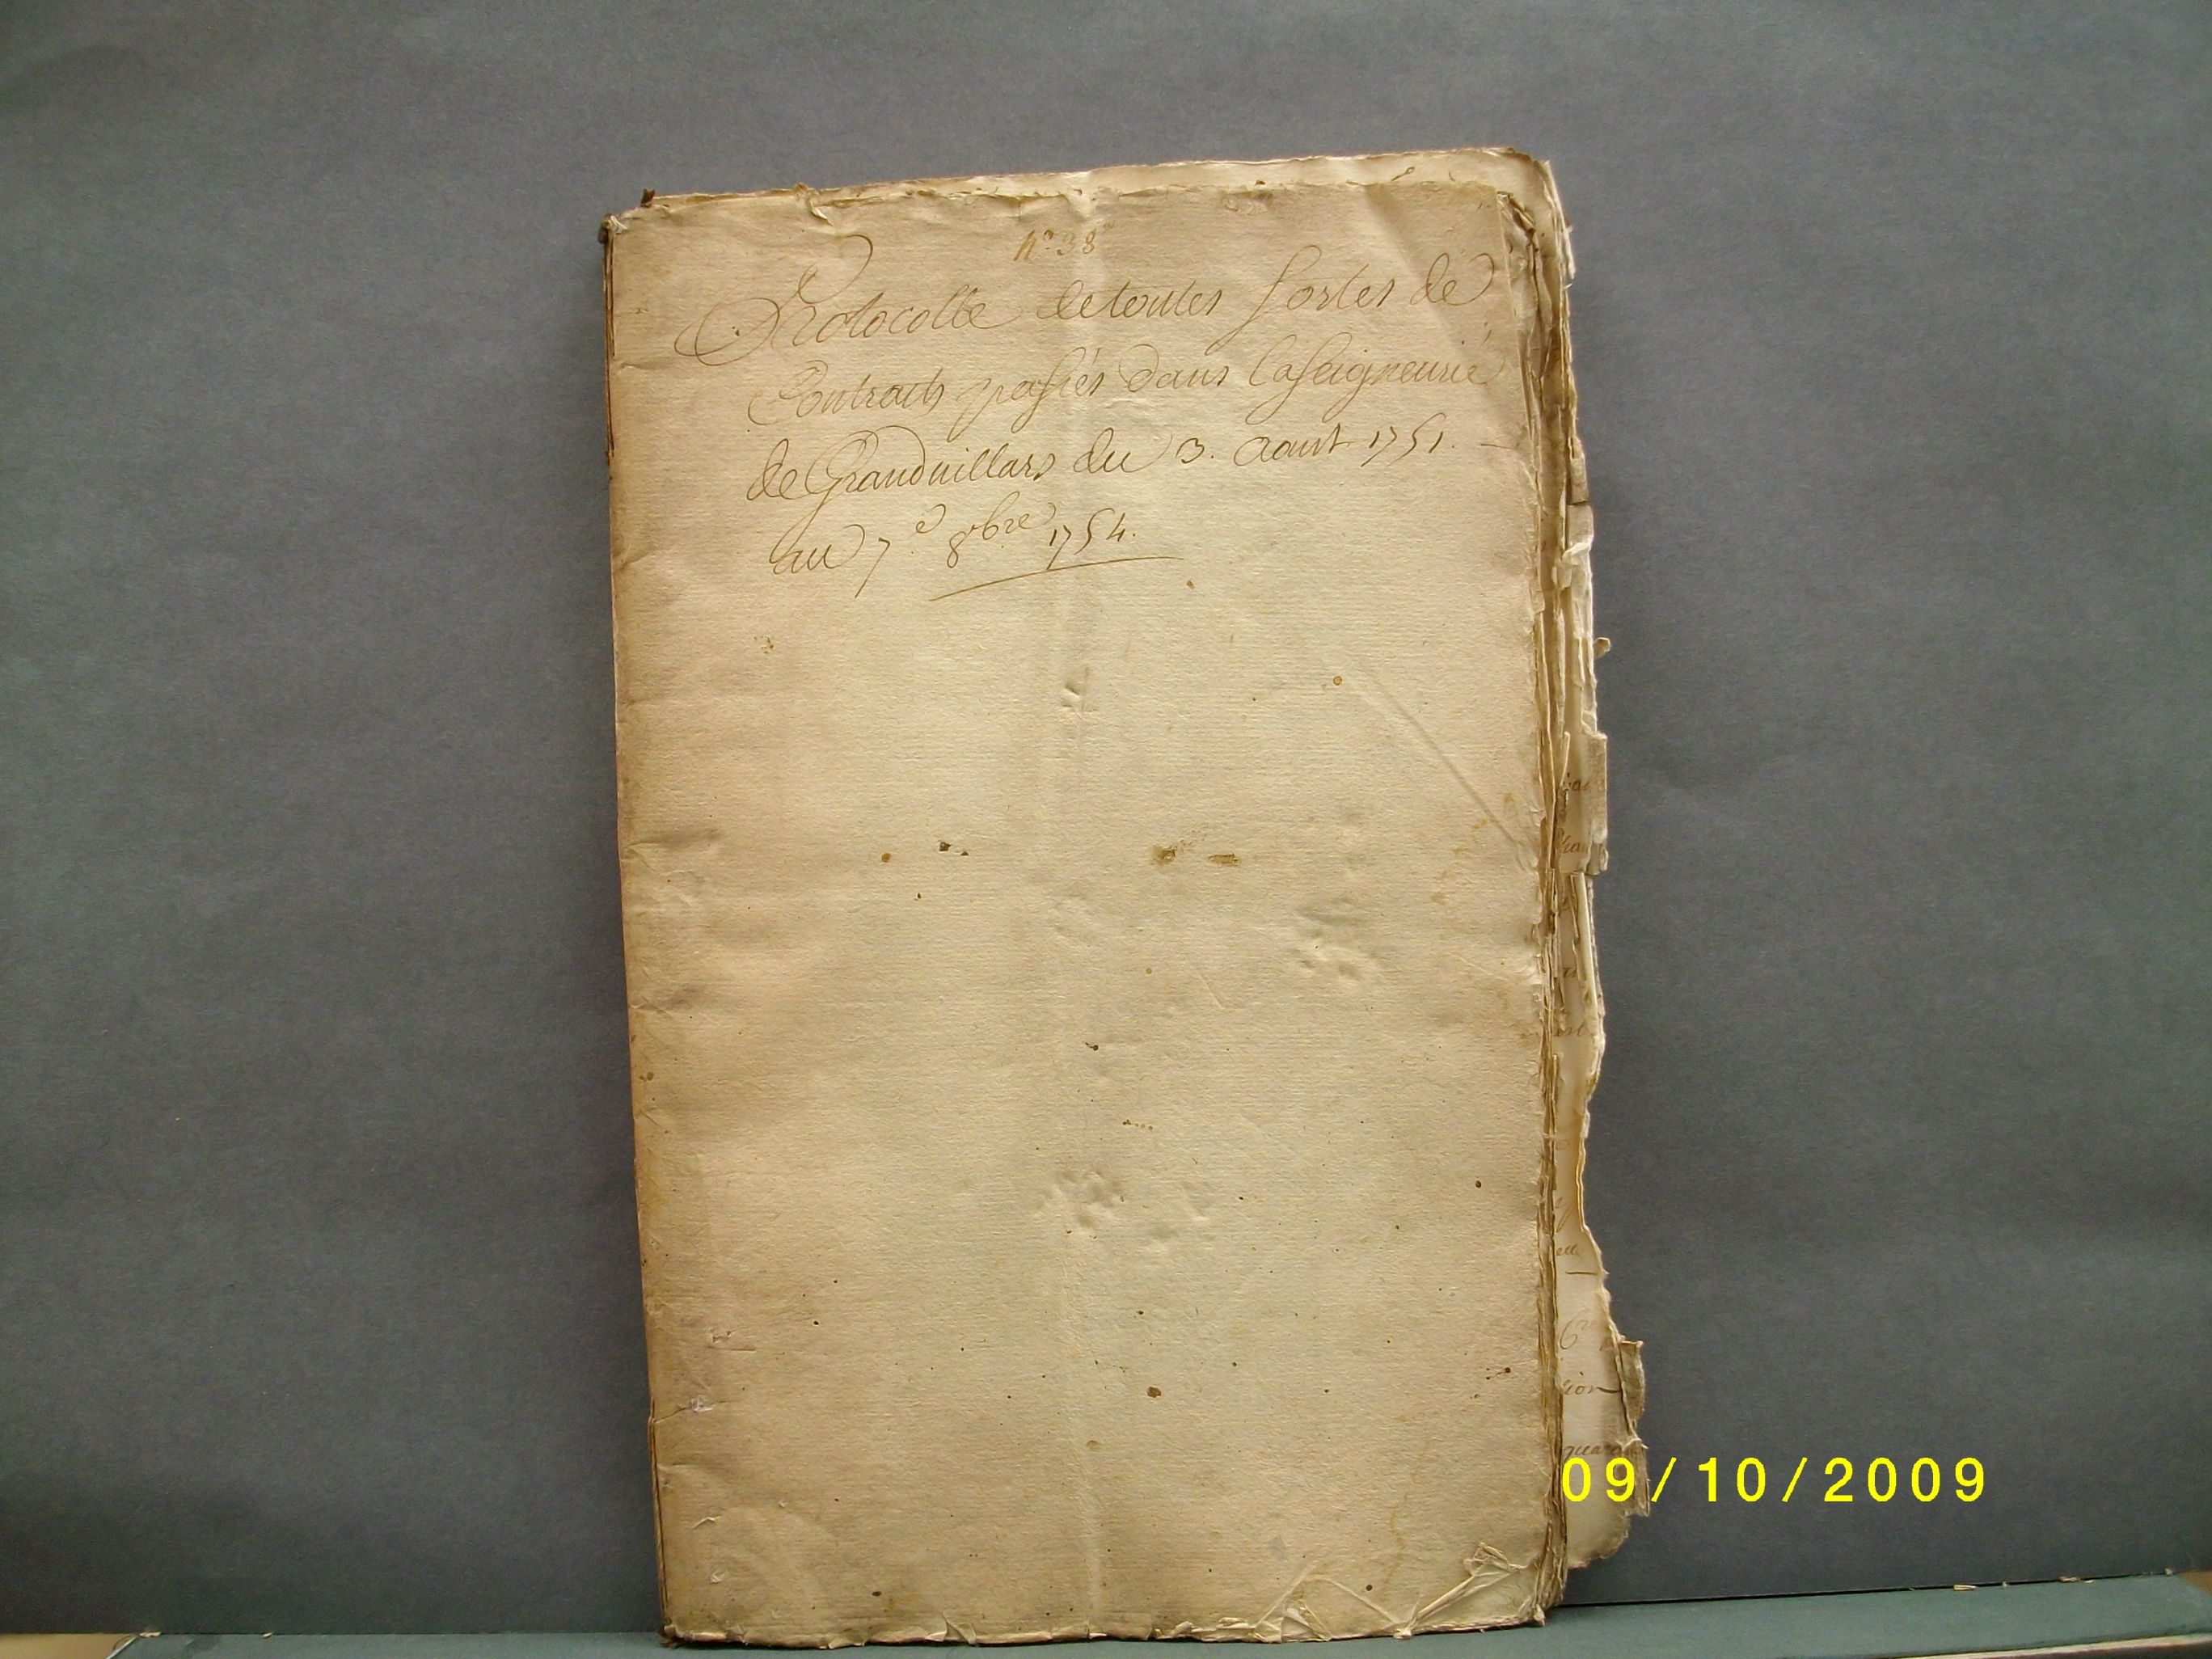 N° 38
Protocolle de toutes sortes de
Contracts passés dans la seigneurie
de Grandvillars du 3. Aoust 1751.
au 7e 8bre 1754.
6re
tion
09/10/2009